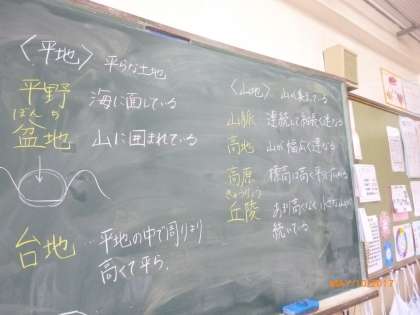 〈平地〉平らな土地
平野 海に面している
ぼんち
盆地 山に囲まれている
台地 平地の中で周りより
高くて平ら。
〈山地〉山が集まっている
山脈 連続して細長く連なる
高地 山が幅広く連なる
高原 標高は高く平らに広がる
きゅうりょう
丘陵 あまり高くなく小さな山が
続いている